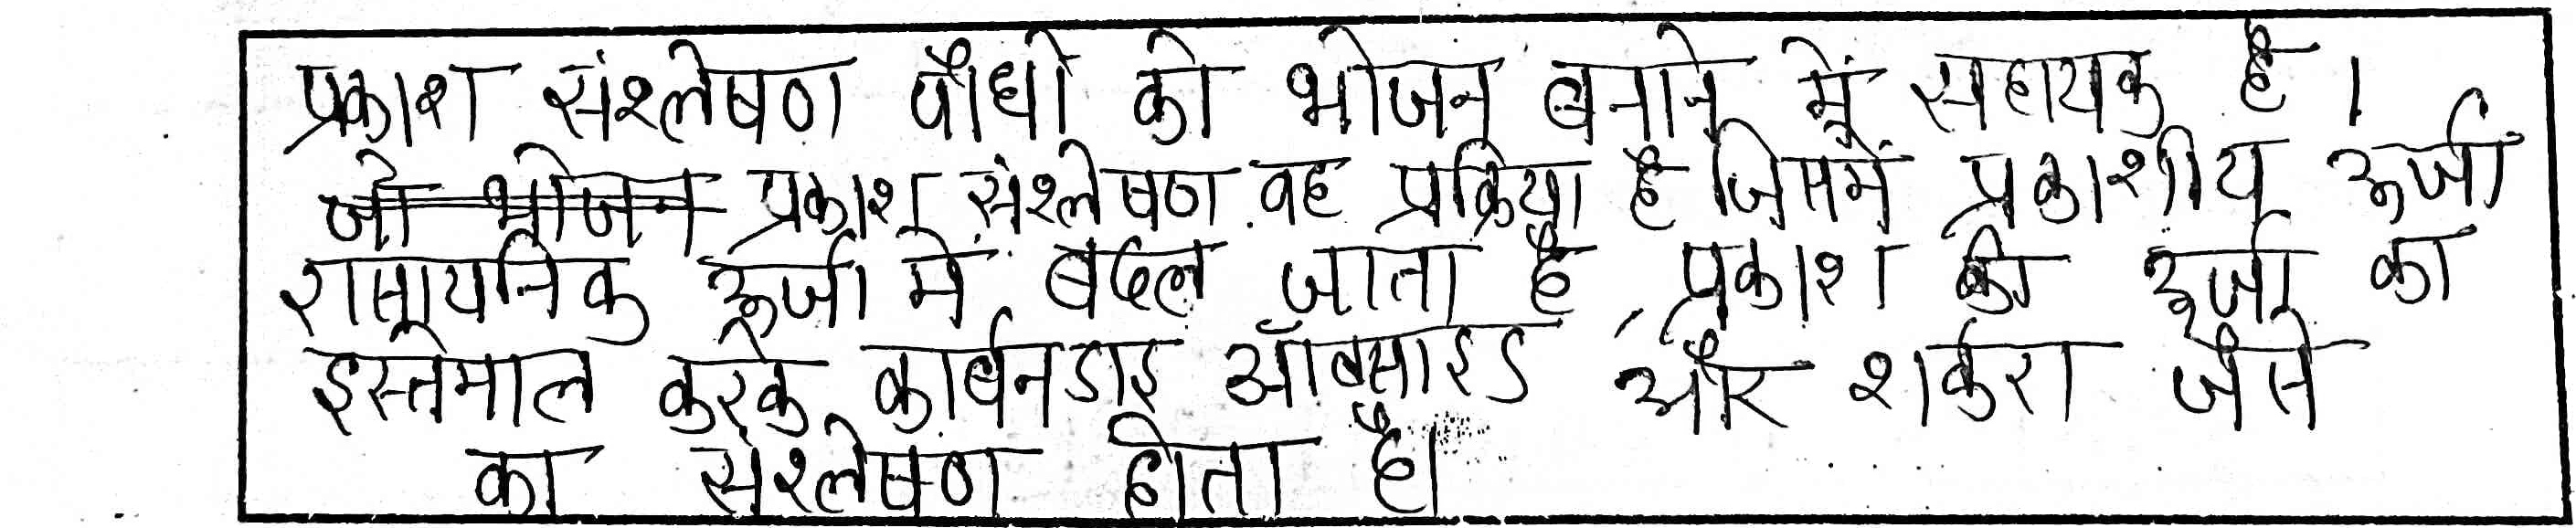 प्रकाश संश्लेषण पौधो को भोजन बनाने में सहायक है ।
जो भोजन प्रकाश संश्लेषण वह प्रक्रिया है जिसमें प्रकाशीय ऊर्जा
रासायनिक ऊर्जा में बदल जाता है, प्रकाश की ऊर्जा का
इस्तेमाल करके कार्बनडाइ ऑक्साइड और शर्करा जैसे
का संश्लेषण होता है।